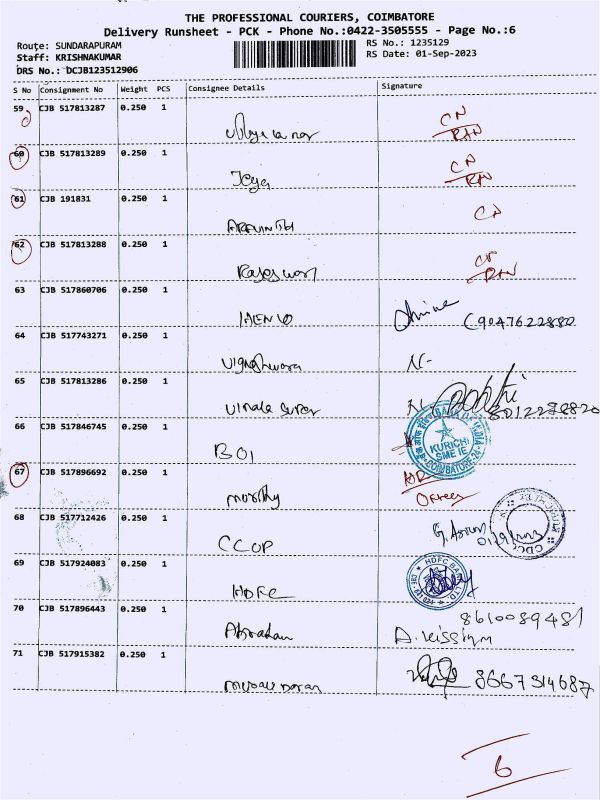 THE PROFESSIONAL COURIERS, COIMBATORE
Delivery Runsheet - PCK - Phone No.:0422-3505555 - Page No.:6
Route: SUNDARAPURAM RS No.: 1235129
Staff: KRISHNAKUMAR RS Date: 01-Sep-2023
DRS No.: DCJB123512906
S No Consignment No Weight PCS Consignee Details Signature
59 CJB 517813287 0.250 1 CN
60 CJB 517813289 0.250 1 Jeya CN
61 CJB 191831 0.250 1 ARAVINTH CN
62 CJB 517813288 0.250 1 Rajeswari
63 CJB 517860706 0.250 1 9047622880
64 CJB 517743271 0.250 1 Vigneshwara
65 CJB 517813286 0.250 1 8012278820
66 CJB 517846745 0.250 1 BOI
BANK OF INDIA KURICHI SME IE COIMBATORE-24
67 CJB 517896692 0.250 1 Moorthy
68 CJB 517712426 0.250 1 CCOP
69 CJB 517924083 0.250 1 HDFC HDFC BANK LTD
70 CJB 517896443 0.250 1 Abraham 8610089481
71 CJB 517915382 0.250 1 8667314687
6